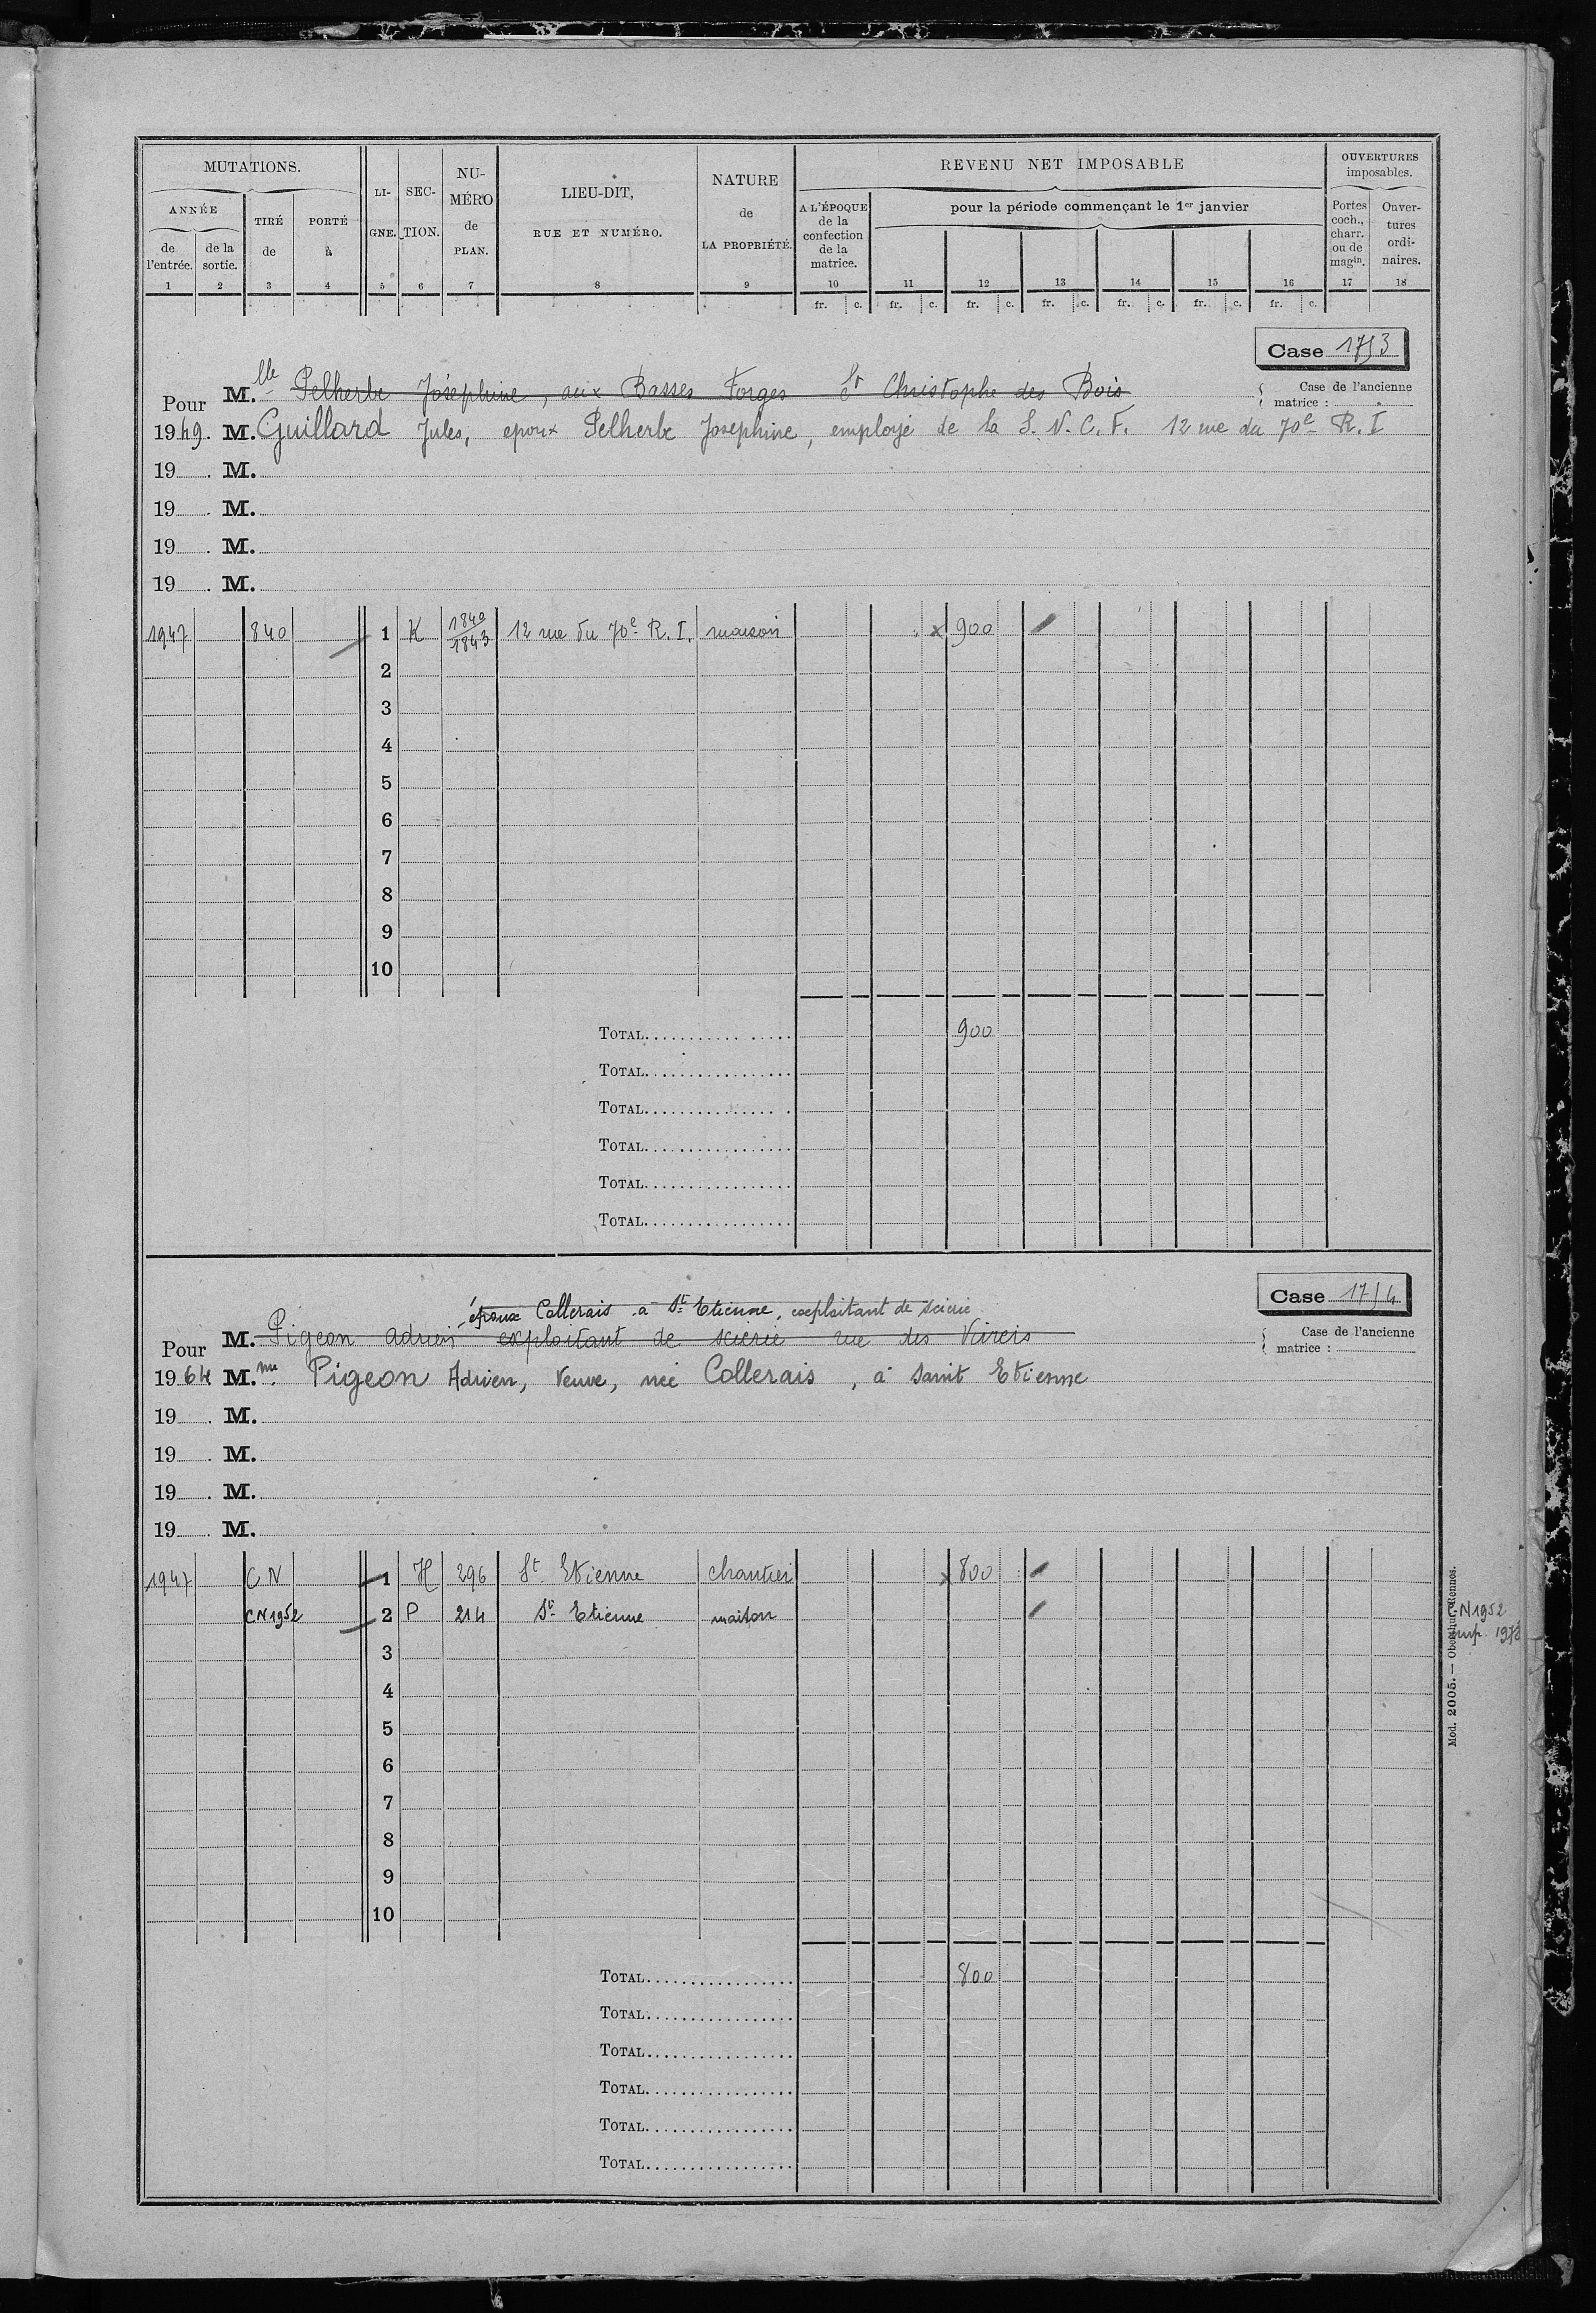 MUTATIONS.
ANNÉE
de l'entrée.
de la sortie.
TIRÉ de
PORTÉ à
LI-GNE.
SEC-TION.
NU-MÉRO de PLAN.
LIEU-DIT, RUE ET NUMÉRO.
NATURE de LA PROPRIÉTÉ.
REVENU NET IMPOSABLE
A L'ÉPOQUE de la confection de la matrice.
pour la période commençant le 1er janvier
OUVERTURES imposables.
Portes coch., charr. ou de magin.
Ouver-tures ordi-naires.
1 2 3 4 5 6 7 8 9 10 11 12 13 14 15 16 17 18
fr. c. fr. c. fr. c. fr. c. fr. c. fr. c. fr. c.
Case 1753
Pour M.lle Pelherbe Joséphine, aux Basses Forges St Christophe des Bois
Case de l'ancienne matrice :
1949. M. Guillard Jules, epoux Pelherbe Josephine, employé de la S.N.C.F. 12 rue du 70e R.I
19 . M.
19 . M.
19 . M.
19 . M.
1947 840 1 K 1840/1843 12 rue du 70e R.I. maison x 900
2
3
4
5
6
7
8
9
10
TOTAL 900
TOTAL
TOTAL
TOTAL
TOTAL
TOTAL
Case 1754
époux Collerais à St Etienne, exploitant de scierie
Pour M. Pigeon Adrien exploitant de scierie rue des
Case de l'ancienne matrice :
1964 M.me Pigeon Adrien, Veuve, née Collerais, à Saint Etienne
19 . M.
19 . M.
19 . M.
19 . M.
1947 CN 1 H 296 St Etienne chantier x 800
CN1952 2 P 214 St Etienne maison
CN1952
imp. 197
3
4
5
6
7
8
9
10
TOTAL 800
TOTAL
TOTAL
TOTAL
TOTAL
TOTAL
Mod. 2005. — Oberthur, Rennes.